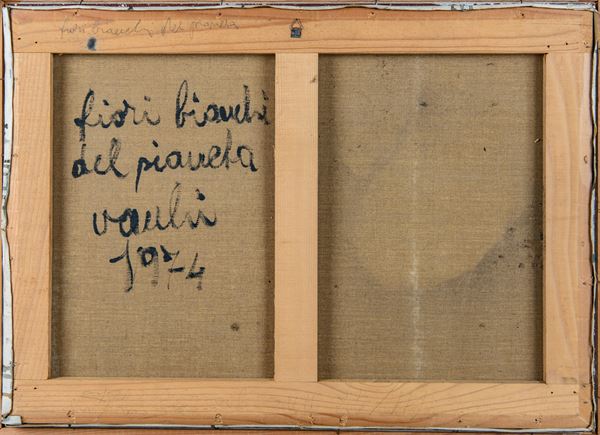 fiori bianchi del pianeta
fiori bianchi
del pianeta
1974